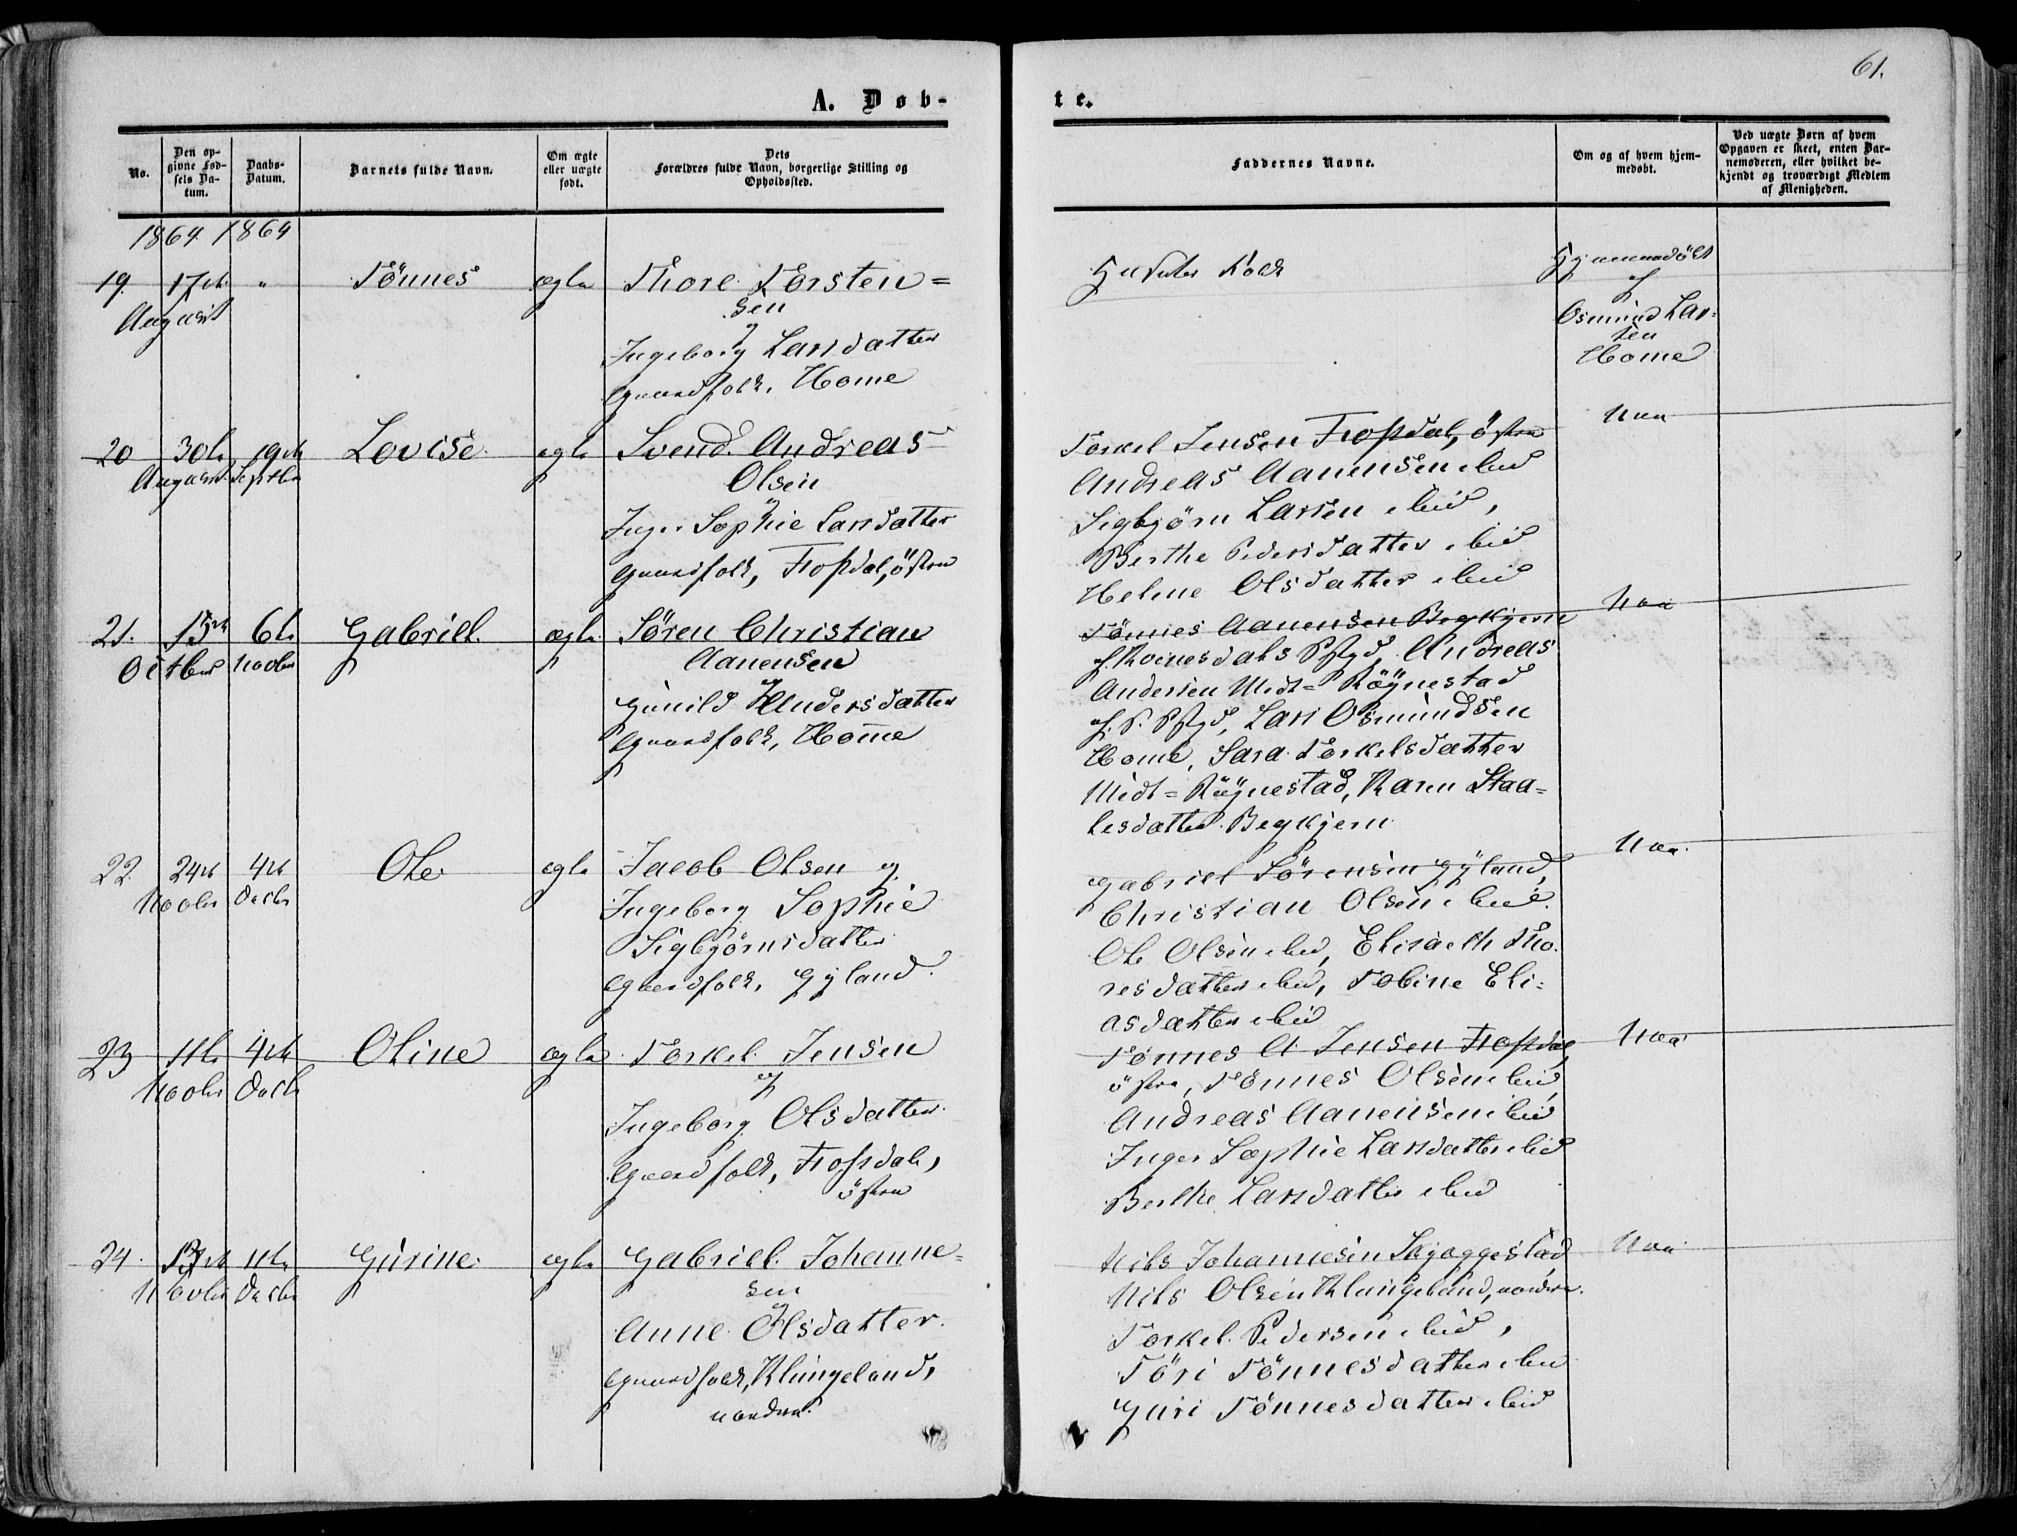 61.
A. Døb-
te.
No.
Den op-
givne Fød-
sels Da-
tum.
Daabs-
Datum.
Barnets fulde Navn.
Om ægte
eller uægte
født.
Dets
Forældres fulde Navn, borgerlige Stilling og
Opholdssted.
Faddernes Navne.
Om og af hvem hjem-
medøbt.
Ved uægte Børn af hvem
Opgaven er skeet, enten Bar-
nemoderen, eller hvilket be-
kjendt og troværdigt Medlem
af Menigheden.
1864 1864
19. 17de " Tönnes ægte Thore Torsten=
August sen
og
Ingeborg Larsdatter
Gaardfolk, Home
Hjemmedöbt
af
Osmund Lar=
sen
Home
20 30te 19de Lovise ægte Svend Andreas
August Septbr Olsen
og
Inger Sophie Larsdatter
Gaardfolk, Frosdal, östre
Torkel Jensen Frosdal, östre Nei
Andreas Aanensen ibid
Sigbjörn Larsen ibid,
Berthe Pedersdatter ibid
Helene Olsdatter ibid
21. 15de 6te Gabriel ægte Sören Christian
Octber Novbr Aanensen
og
Gunild Andersdatter
Gaardfolk, Home
Tönnes Aanensen Begkjern Nei
Qvinesdals Pgjd, Andreas
Andersen Midt=Röynestad
Pgjd, Lars Osmundsen
Home, Sara Torkelsdatter
Midt=Röynestad, Karen Staa=
lesdatter Begkjern
22. 24de 4de Ole ægte Jacob Olsen og
Novbr Decbr Ingeborg Sophie
Sigbjörnsdatter
Gaardfolk, Gyland.
Gabriel Sörensen Gyland, Nei
Christian Olsen ibid
Ole Olsen ibid, Elisabeth Tho=
resdatter ibid, Tobine Eli=
asdatter ibid
23 11te 4de Oline ægte Torkel Jensen
Novbr Decbr og
Ingeborg Olsdatter
Gaardfolk, Frosdal,
östre
Tönnes A Jensen Frosdal Nei
östre, Tönnes Olsen ibid
Andreas Aanensen ibid
Inger Sophie Larsdatter ibid
Berthe Larsdatter ibid
24. 13de 11te Gurine ægte Gabriel Johanne=
Novber Decbr sen
og
Anne Olsdatter
Gaardfolk, Klungeland,
nordre
Nils Johannesen Skjoggestad Nei
Nils Olsen Klungeland, nordre.
Torkel Pedersen ibid,
Töri Tönnesdatter ibid
Guri Tönnesdatter ibid